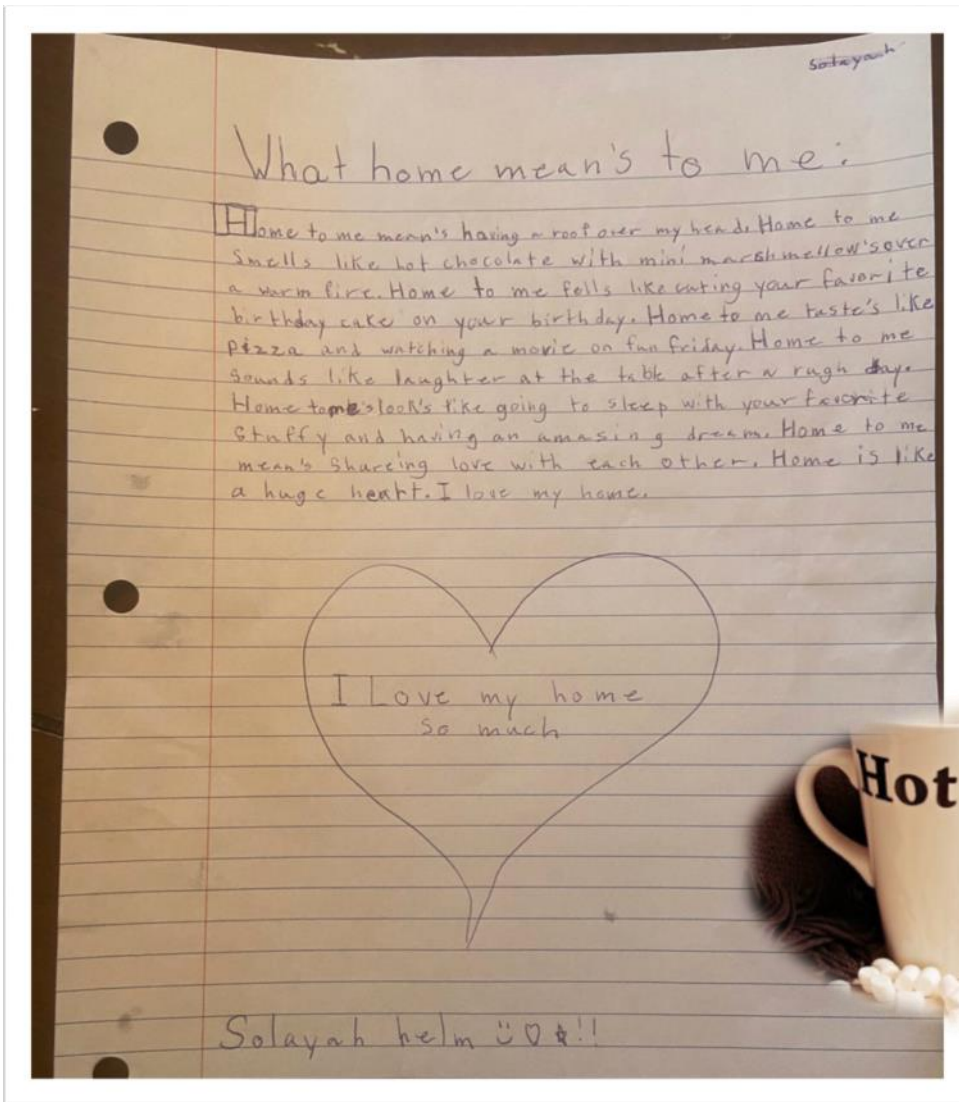 Solayah
What home mean's to me:
Home to me mean's having a roof over my head. Home to me
Smells like hot chocolate with mini marshmellow's over
a warm fire. Home to me fells like eating your favorite
birthday cake on your birthday. Home to me taste's like
pizza and watching a movie on fun friday. Home to me
Sounds like laughter at the table after a rugh day.
Home to me look's like going to sleep with your favorite
Stuffy and having an amasing dream. Home to me
mean's Shareing love with each other. Home is like
a huge heart. I love my home.
I Love my home
so much
Hot
Solayah helm !!